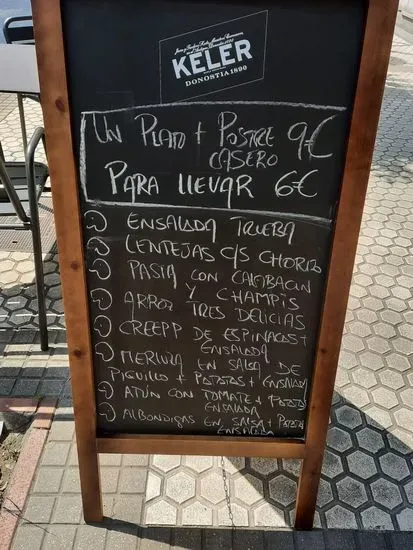 KELER
DONOSTIA 1890
UN PLATO + POSTRE 9€
CASERO
PARA LLEVAR 6€
ENSALADA TRUEBA
LENTEJAS C/S CHORIZO
PASTA CON CALABACIN
Y CHAMPIS
ARROZ TRES DELICIAS
CREEPP DE ESPINACAS +
ENSALADA
MERLUZA EN SALSA DE
PIQUILLO + PATATAS + ENSALADA
ATÚN CON TOMATE + PATATAS
ENSALADA
ALBONDIGAS EN SALSA + PATATAS
ENSALADA